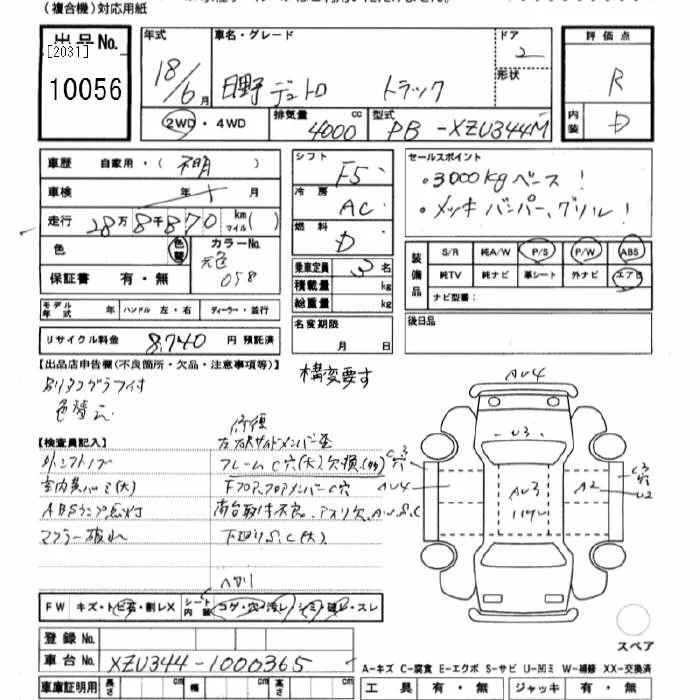 (複合機)対応用紙
出品No.
[2031]
10056
年式
18/6月
車名・グレード
日野 デュトロ トラック
ドア
2
形状
2WD・4WD
排気量
4000cc
型式
PB-XZU344M
評価点
R
内装
D
車歴 自家用・(不明)
車検 年 月
走行 28万8千870 km(マイル)
色
色替
カラーNo.
元色
058
保証書 有・無
シフト
F5
冷房
AC
燃料
D
乗車定員 3名
積載量 kg
総重量 kg
セールスポイント
・3000kgベース!
・メッキバンパー、グリル!
装備品
S/R 純A/W P/S P/W ABS
純TV 純ナビ 革シート 外ナビ エアB
ナビ型番:
モデル年式 年 ハンドル 左・右 ディーラー・並行
リサイクル料金 8,740 円 預託済
名変期限
月 日
後日品
【出品店申告欄(不良箇所・欠品・注意事項等)】
別タコグラフ付
色替え
構変要す
【検査員記入】
修復
フレームC穴(大)欠損(多)
室内
(大)
FフロアフロアメンバーC穴
ABSランプ点灯
荷台取付不良、アオリ欠、A.U.S.C
マフラー破れ
下廻りS.C(大)
ヘタリ
AU4
U3
C3
穴
AU4
AU3
A2
C3
穴
U2
FW キズ・トビ石・割レX シート内装 コゲ・穴・汚レ・シミ・破レ・スレ
登録No.
車台No. XZU344-1000365
車庫証明用 長さ cm 幅 cm 高さ cm
スペア
A-キズ C-腐食 E-エクボ S-サビ U-凹ミ W-補修 XX-交換済
工具 有・無 ジャッキ 有・無